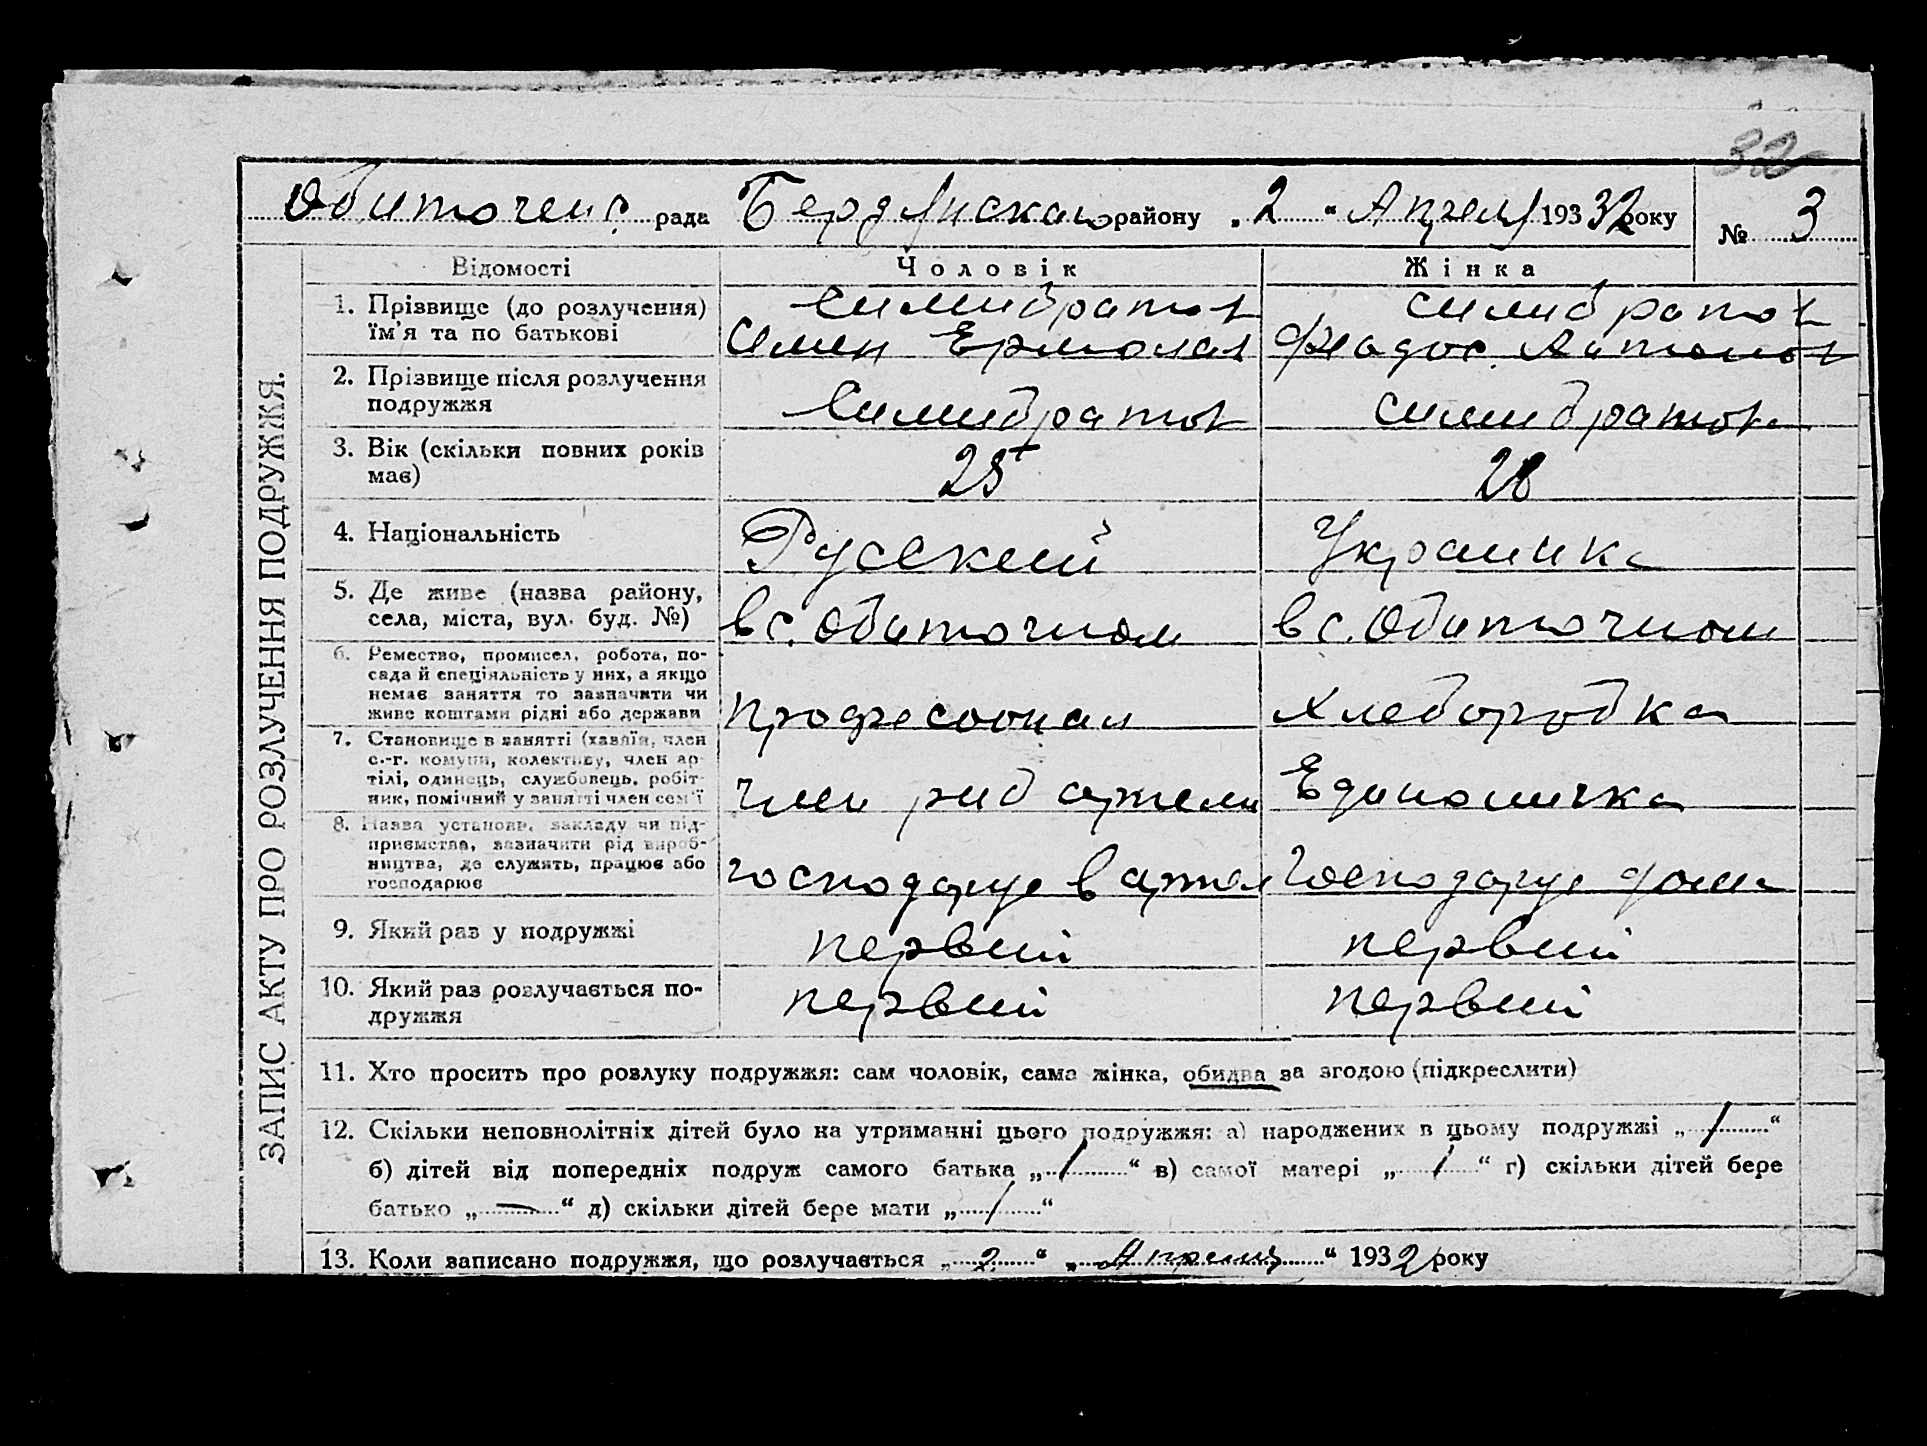 32
Обиточенс. рада Бердянскаго району „2“ Апреля 193 32 року № 3
ЗАПИС АКТУ ПРО РОЗЛУЧЕННЯ ПОДРУЖЖЯ.
Відомості Чоловік Жінка
1. Прізвище (до розлучення) їм'я та по батькові
Симибратов Симибратов
Семен Ермолая Феадос. Антонов
2. Прізвище після розлучення подружжя
Симибратов Симибратов
3. Вік (скільки повних років має)
25 28
4. Національність
Русский Украинка
5. Де живе (назва району, села, міста, вул. буд. №)
в с. Обиточном в с. Обиточном
6. Ремество, промисел, робота, посада й спеціяльність у них, а якщо немає заняття то зазначити чи живе коштами рідні або держави
професионал Хлеборобка
7. Становище в занятті (хазяїн, член с.-г. комуни, колективу, член артілі, одинець, службовець, робітник, помічний у занятті член сем'ї
член риб артели Единоличка
8. Назва установи, закладу чи підприємства, зазначити рід виробництва, де служить, працює або господарює
господарує в артел господарує дома
9. Який раз у подружжі
первий первий
10. Який раз розлучається подружжя
первий первий
11. Хто просить про розлуку подружжя: сам чоловік, сама жінка, обидва за згодою (підкреслити)
12. Скільки неповнолітніх дітей було на утриманні цього подружжя: а) народжених в цьому подружжі „1“
б) дітей від попередніх подруж самого батька „/“ в) самої матері „/“ г) скільки дітей бере
батько „—“ д) скільки дітей бере мати „1“
13. Коли записано подружжя, що розлучається „2“ „Апреля“ 1932 року